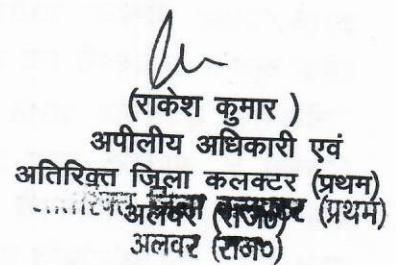 (राकेश कुमार )
अपीलीय अधिकारी एवं
अतिरिक्त जिला कलक्टर (प्रथम)
अलवर (राज०) (प्रथम)
अलवर (राज०)